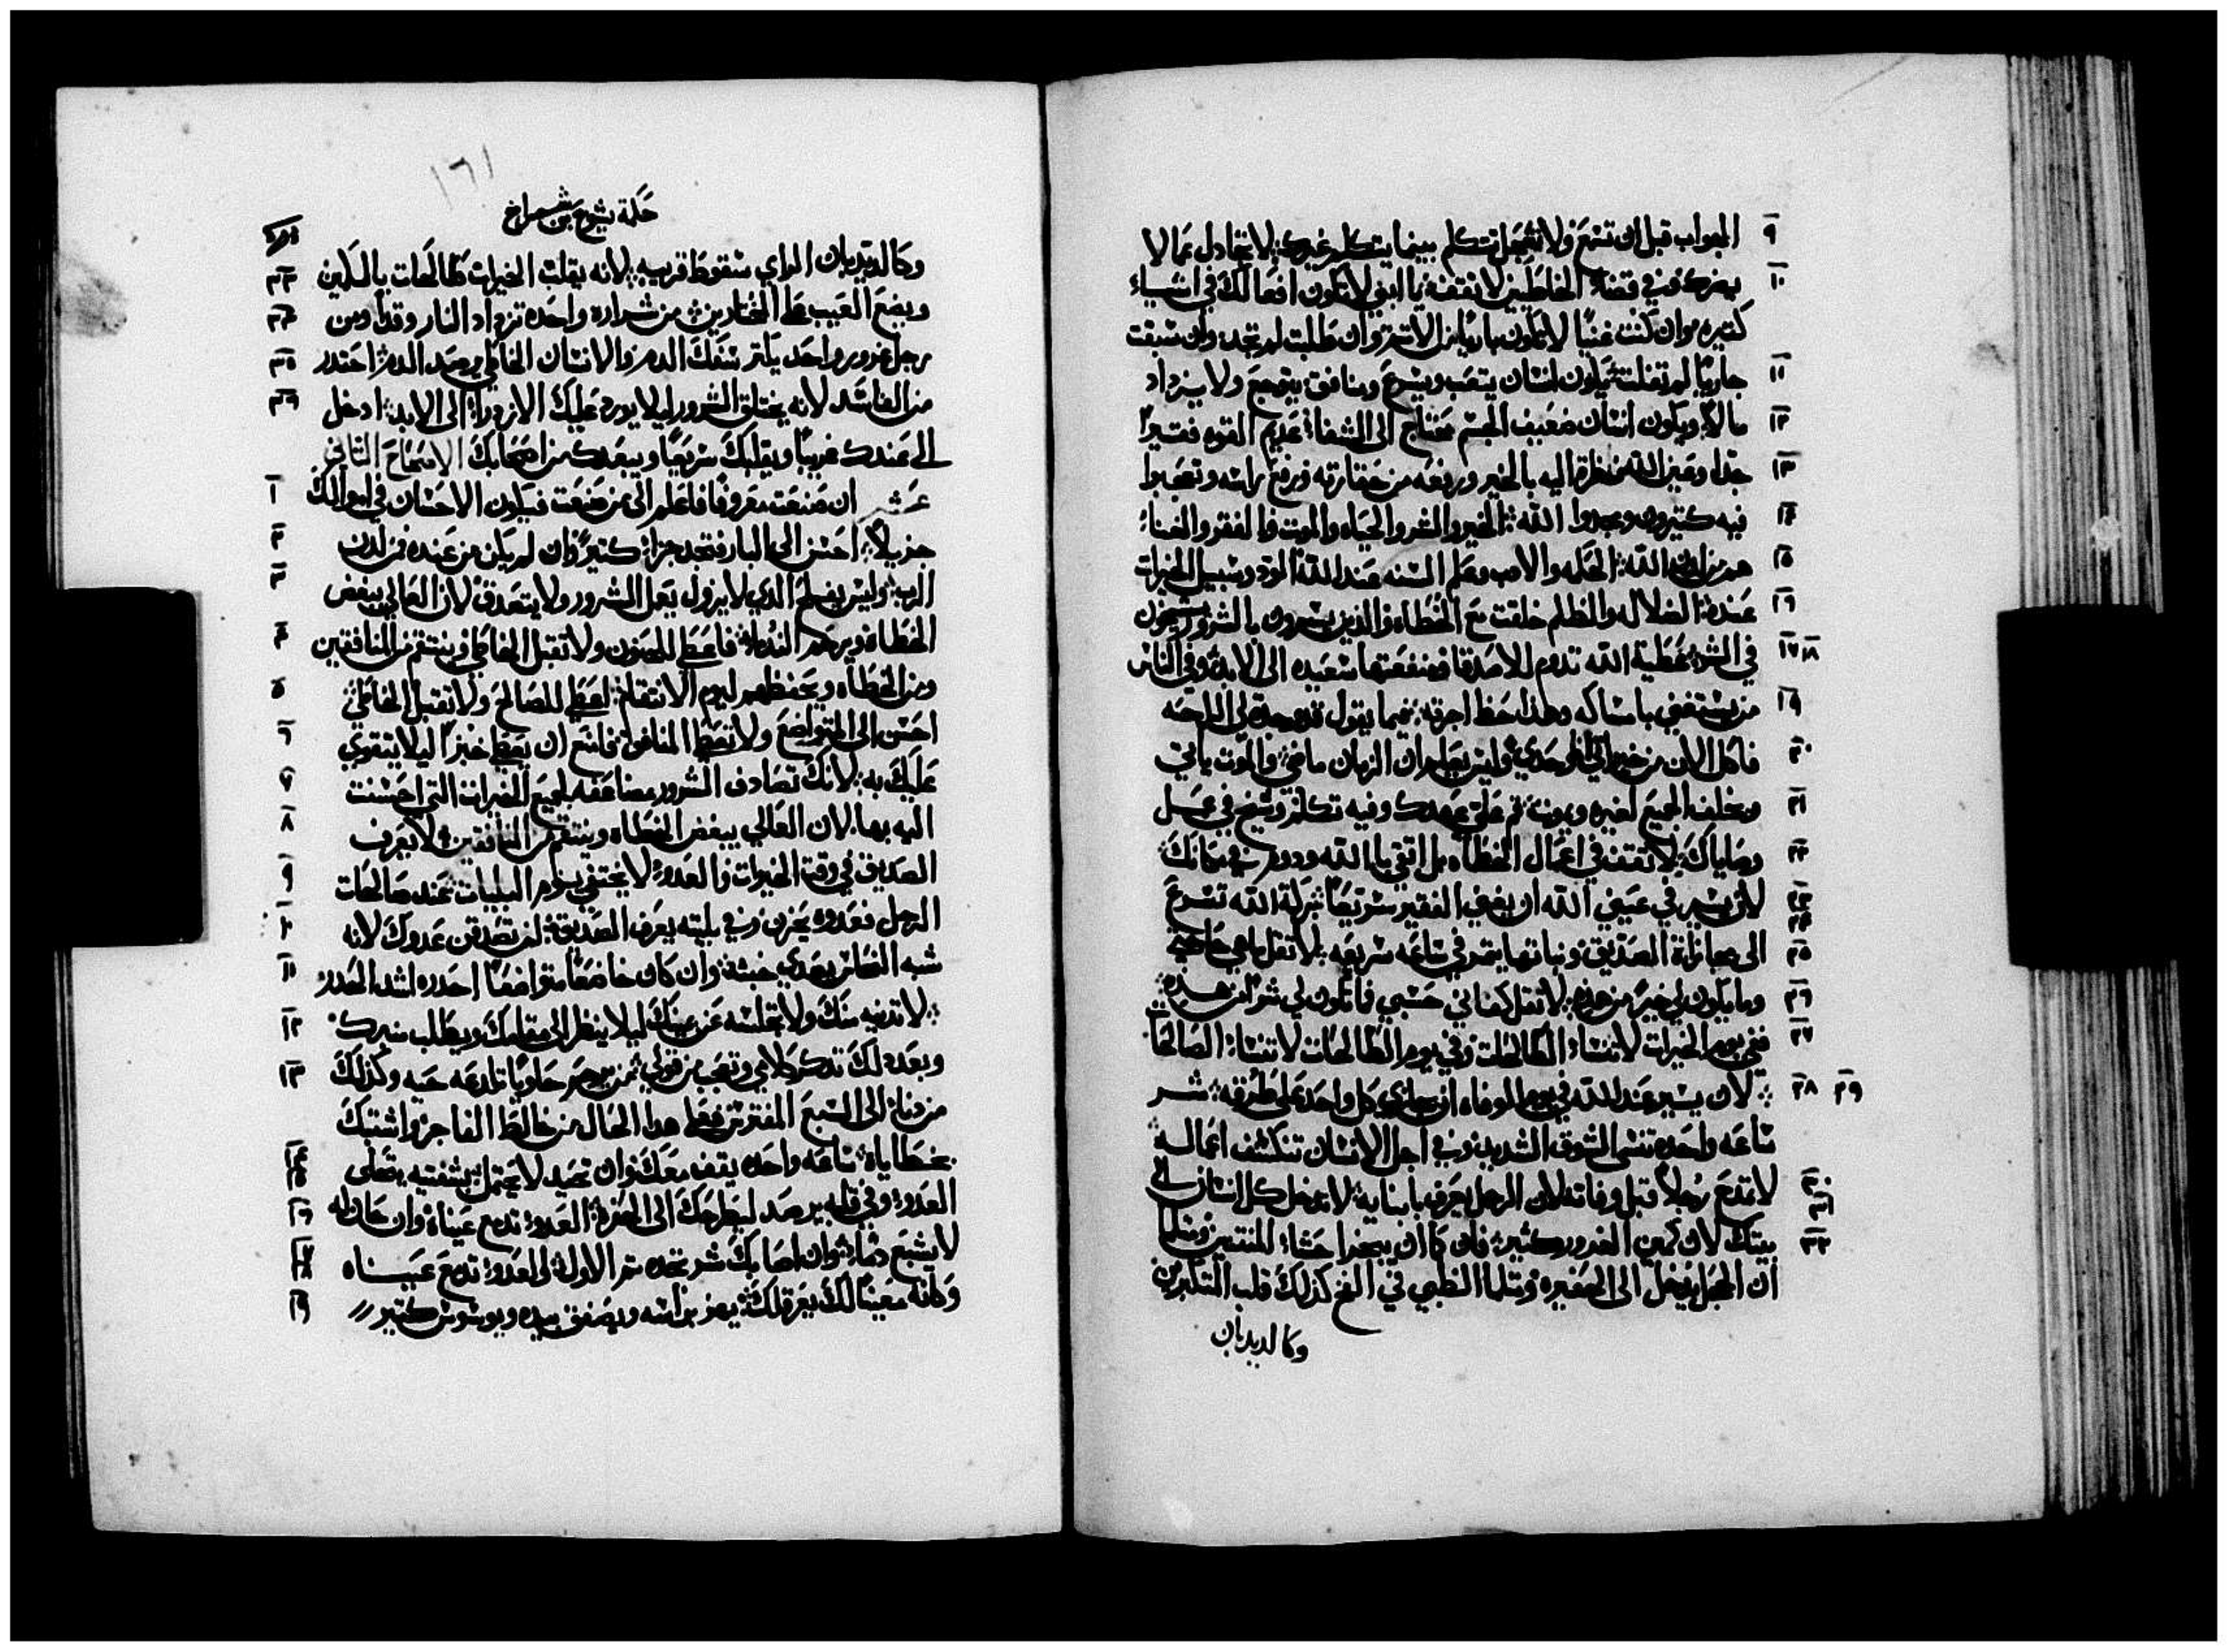 ٩ الجواب قبل ان تسمع ولا تعجل تتكلم بينما يتكلم غيرك: لا تجادل عما لا
١٠ يضرك وفي قضاء الخاطيين لا تقف: يا ابني لا تكون افعالك في اشياء
كتيره وان كنت غنيًا لا تكون باريًا من الاتم وان طلبت لم تجد وان سبقت
١١ جاريًا لم تفلت: يكون انسان يتعب ويسرع ومنافق يتوجع ولا يزداد
١٢ مالاً ويكون انسان ضعيف الجسم محتاج الى الشفاء عديم القوه فقيرًا
١٣ جدا وعين الله نظرة اليه بالخير ورفعه من حقارته ورفع راسه وتعجبوا
١٤ فيه كتيرون ومجدوا الله: الخير والشر والحياه والموت والفقر والغناء
١٥ هم من لدن الله: الحكمه والادب وعلم السنه عند الله الود وسبيل الخيرات
١٦ عنده: الضلاله والظلم خلقت مع الخطاه والذين يسرون بالشرور يشيخون
١٧ ١٨ في الشر: عطية الله تدوم للاصدقا ومنفعتها سعيده الى الابد وفي الناس
١٩ من يستغني بامساكه وهذا حظ اجرته: فيما يقول قد وجدت لي الراحه
٢٠ فاكل الان من خيراتي وحدي وليس يعلم ان الزمان ماضي والموت ياتي
٢١ ويخلف الجميع لغيره ويموت: تم على عهدك وفيه تكلم وشيخ في عمل
٢٢ وصاياك: لا تقف في اعمال الخطاه بل اتق بالله ودوم في مكانك
٢٣ لان يسير في عيني الله ان يغني الفقير سريعًا: بركة الله تسرع
٢٤
٢٥ الى مجازاة الصديق ونباتها يتمر في ساعه سريعه: لا تقل ما هي حاجتي
٢٦ وما يكون لي خير من هذه: لا تقل كفاني حسبي فما يكون لي شر من هذه
٢٧ ففي يوم الخيرات لا تنسا الطالحات وفي يوم الطالحات لا تنسا الصالحات
٢٨ ٢٩ لان يسير عند الله في يوم الوفاه ان يجازي كل واحد على طرقه: شر
ساعه واحده تنسي الشوق الشديد وفي اجل الانسان تنكشف اعماله
٣٠ لا تمدح رجلاً قبل وفاته لان الرجل يعرف بابنايه: لا تدخل كل انسان الى
٣١
٣٢ بيتك لان كمين الغرور كثير: فان كما ان يبخرا حشاء المنتنين ومتلما
ان الحجل يدخل الى الحفيره ومتلما الظبي في الفخ كذلك قلب المتكبرين
وكالديدبان
١٦١
حكمة يشوع بن شيراخ
٣٣ وكالديدبان الراي سقوط قريبه: لانه يقلب الخيرات طالحات بالكمين
٣٤ ويضع العيب على المختارين: من شراره واحده تزداد النار وقد
٣٥ رجل غرور واحد يكتر سفك الدم والانسان الخاطي يرصد الدم: احتدر
٣٦ من الفاسد لانه يختلق الشرور ليلا يورد عليك الازدراء الى الابد: ادخل
الى عندك غريبًا ويقلبك سريعًا ويبعدك من اصحابك الاصحاح التاني
١ عشر ان صنعت معروفًا فاعلم الى من صنعت فيكون الاحسان في اموالك
٢ جزيلاً: احسن الى البار فتجد جزاءً كتيرًا وان لم يكن من عنده فمن لدن
٣ الرب: وليس يفلح الذي لا يزول يعمل الشرور ولا يتصدق لان العالي يبغض
٤ الخطاه ويرحم الندماء: فاعطي للحنون ولا تقبل الخاطي وينتقم من المنافقين
٥ ومن الخطاه ويحفظهم ليوم الانتقام: اعطي للصالح ولا تقبل الخاطي
٦ احسن الى المتواضع ولا تعطي المنافق: فامنع ان يعطى خبزًا ليلا يتقوى
٧ عليك به: لانك تصادف الشرور مضاعفه بجميع الخيرات التي احسنت
٨ اليه بها: لان العالي يبغض الخطاه وينتقم من المنافقين: لا يعرف
٩ الصديق في وقت الخيرات والعدو لا يختفي: يوم البليات عند صالحات
١٠ الرجل فعدوه يحزن وفي بليته يعرف الصديق: لن تصدقن عدوك لانه
١١ شبه النحاس يصدي خبثه وان كان خاضعًا متواضعًا احدره اشد الحدر
١٢ لا تدنيه منك ولا تجلسه عن يمينك ليلا ينظر الى مقامك ويطلب منبرك
١٣ وبعد ذلك تدكر كلامي وتعجب من قولي: من يرحم حاويًا تلدغه حيه وكذلك
من دنا الى السبع المفترس فعلى هدا الحال من خالط الفاجر واشتبك
١٤ بخطاياه: ساعه واحده يقف معك وان تحيد لا يحتمل: بشفتيه يتحلى
١٥
١٦ العدو وفي قلبه يرصد ليطرحك الى الحفره: العدو تدمع عيناه وان
١٧ لا يشبع دماء: وان اصابك شر تجده تم الاول: العدو تدمع عيناه
١٨
١٩ وكانه معينًا لك يعرقلك: يهز براسه ويصفق بيده ويوشوش كتير